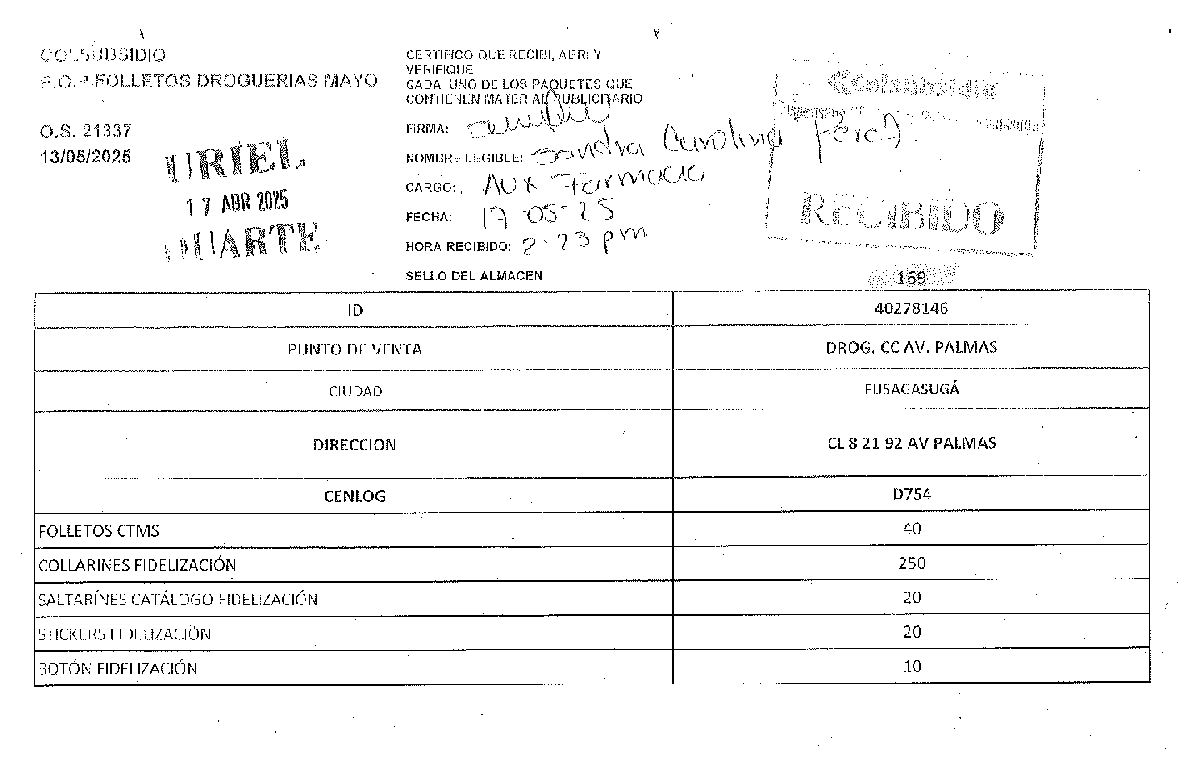 COLSUBSIDIO
P.O.P FOLLETOS DROGUERIAS MAYO
O.S. 21337
13/05/2025
URIEL
17 ABR 2025
DUARTE
CERTIFICO QUE RECIBI, ABRI Y
VERIFIQUE
CADA UNO DE LOS PAQUETES QUE
CONTIENEN MATERIAL PUBLICITARIO
FIRMA:
NOMBRE LEGIBLE: Sandra Carolina
CARGO: Aux Farmacia
FECHA: 17 05 25
HORA RECIBIDO: 2:23 pm
SELLO DEL ALMACEN
Colsubsidio
RECIBIDO
169
ID 40278146
PUNTO DE VENTA DROG. CC AV. PALMAS
CIUDAD FUSAGASUGÁ
DIRECCION CL 8 21 92 AV PALMAS
CENLOG D754
FOLLETOS CTMS 40
COLLARINES FIDELIZACIÓN 250
SALTARÍNES CATÁLOGO FIDELIZACIÓN 20
STICKERS FIDELIZACIÓN 20
BOTÓN FIDELIZACIÓN 10